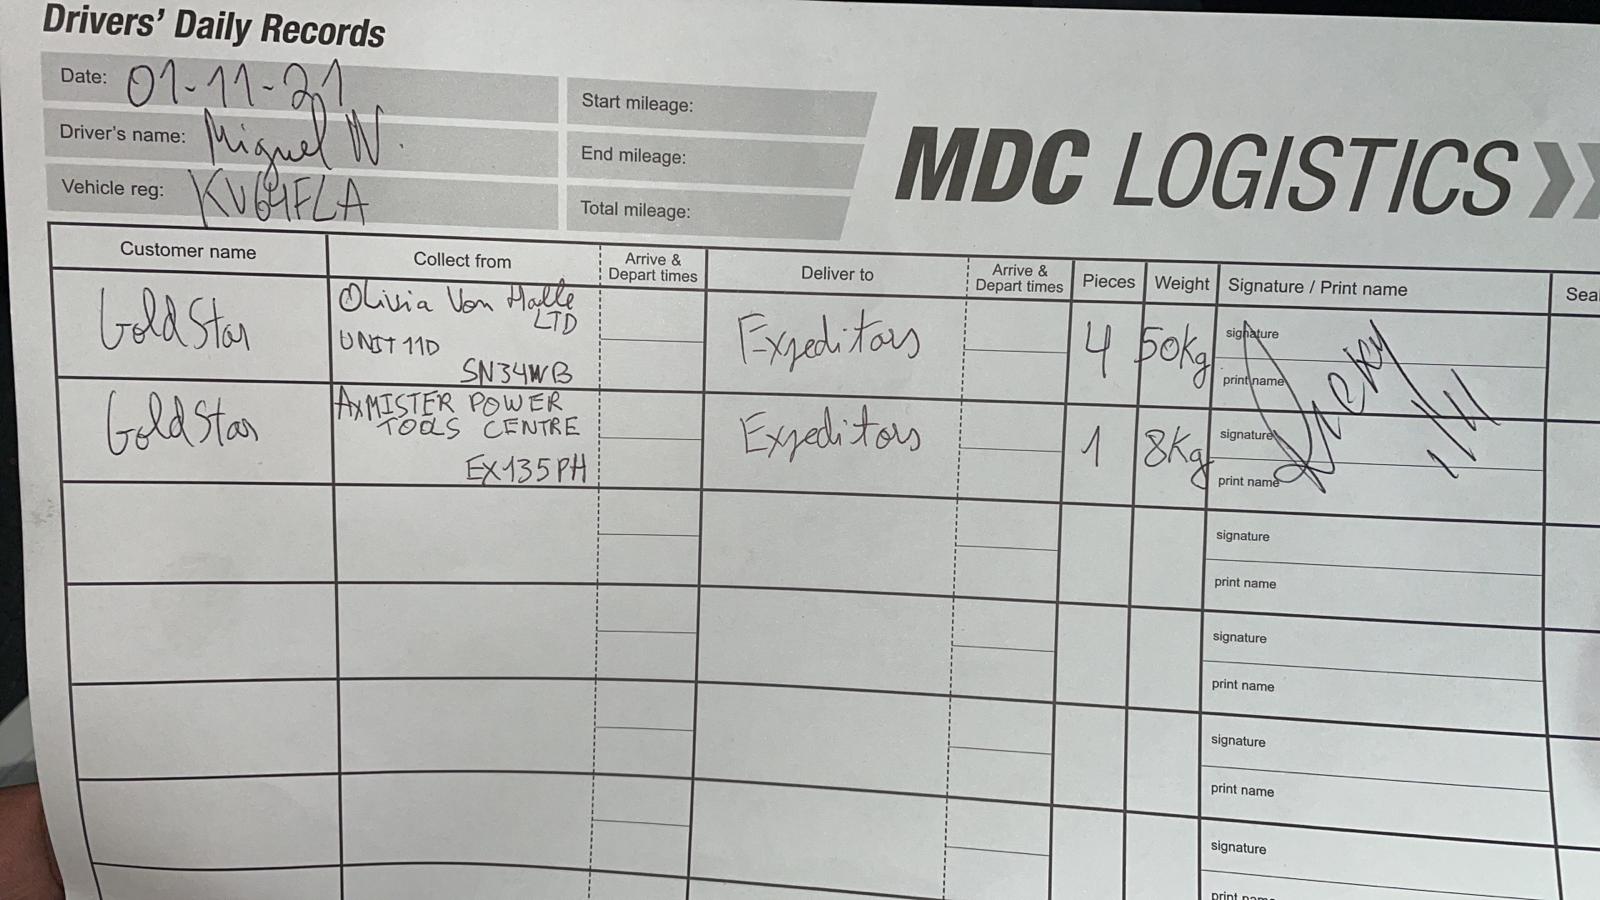 Drivers' Daily Records
Date: 01-11-21
Driver's name: Miguel W.
Vehicle reg: KV64FLA
Start mileage:
End mileage:
Total mileage:
MDC LOGISTICS
Customer name
Collect from
Arrive &
Depart times
Deliver to
Arrive &
Depart times
Pieces
Weight
Signature / Print name
Seal
Gold Star
Olivia Von Halle
LTD
UNIT 11D
SN34WB
Expeditors
4
50kg
signature
print name
Gold Star
AXMISTER POWER
TOOLS CENTRE
EX135PH
Expeditors
1
8Kg
signature
print name
1/11
signature
print name
signature
print name
signature
print name
signature
print name